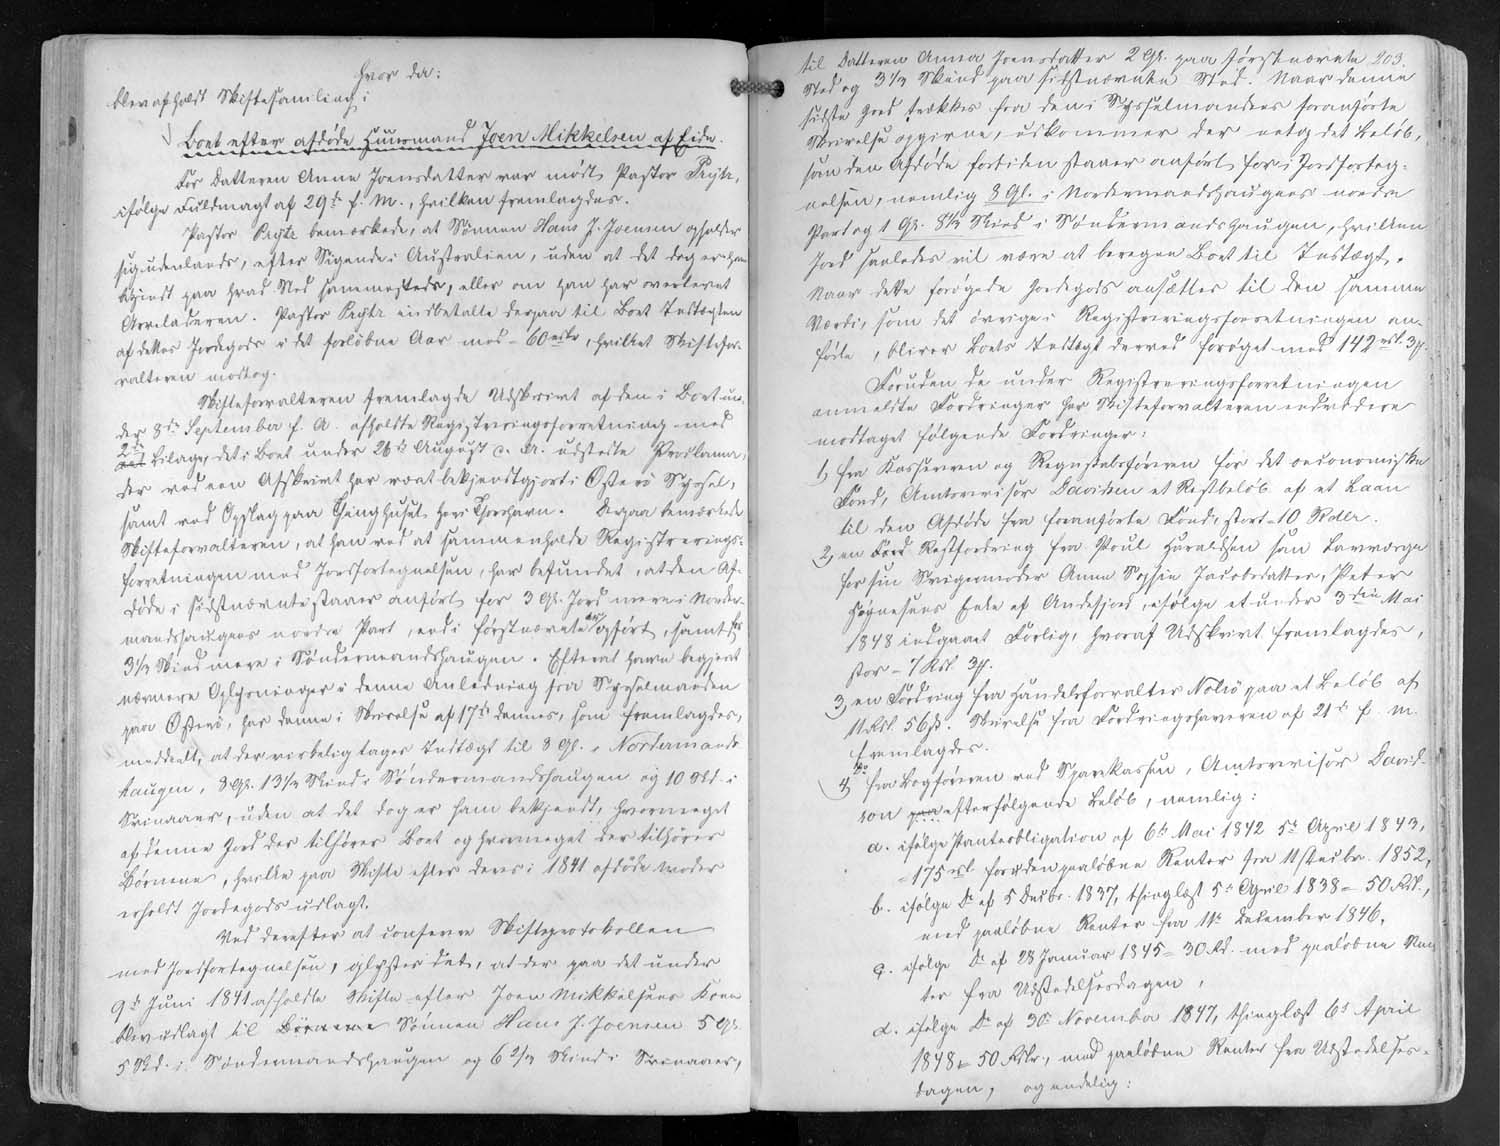 hvor da:
blev afholdt Skiftesamling i
Boet efter afdøde Huusmand Joen Mikkelsen af Eide.
For Datteren Anne Joensdatter var mødt Pastor Prytz,
ifølge Fuldmagt af 29de f. M., hvilken fremlagdes.
Pastor Prytz bemærkede, at Sønnen Hans J. Joensen opholder
sig udenlands, efter Sigende i Australien, uden at det dog er ham
bekjendt paa hvad Sted sammesteds, eller om han har overlevet
Arveladeren. Pastor Prytz indbetalte derpaa til Boet Indtægten
af dettes Jordegods i det forløbne Aar med - 60 , hvilket Skiftefor-
valteren modtog.
Skifteforvalteren fremlagde Udskrivt af den i Boet un-
der 8de September f. A. afholdte Registreringsforretning med
2de Bilage, det i Boet under 26de August c. A. udstedte Proclama,
der ved en Afskrivt har været bekjendtgjort i Østerø Syssel,
samt ved Opslag paa Thinghuset her i Thorshavn. Derpaa bemærkede
Skifteforvalteren, at han ved at sammenholde Registrerings-
forretningen med Jordfortegnelsen, har befundet, at den Af-
døde i sidstnævnte staaer anført for 3 Gl. Jord mere i Norder-
mandshaugens nordre Part, end i førstnævnte er opført, samt for
3 1/2 Skind mere i Søndermandshaugen. Efterat have begjert
nærmere Oplysninger i denne Anledning fra Sysselmanden
paa Østerø, har denne i Skrivelse af 17de dennes, som fremlagdes,
meddeelt, at der virkelig tages Indtægt til 8 Gl. i Nordermands-
haugen, 3 Gl. 13 1/2 Skind i Søndermandshaugen og 10 Skd. i
Svinaaer, uden at det dog er ham bekjendt, hvormeget
af denne Jord der tilhører Boet og hvormeget der tilhører
Børnene, hvilke paa Skifte efter deres i 1841 afdøde Moder
erholdt Jordegods udlagt.
Ved derefter at conferere Skifteprotokollen
med Jordfortegnelsen, oplystes det, at der paa det under
9de Juni 1841 afholdte Skifte efter Joen Mikkelsens Kone
blev udlagt til Børnene Sønnen Hans J. Joensen 5 Gl.
5 Skd. i Søndermandshaugen og 6 2/3 Skind i Svinaaer,
203.
til Datteren Anna Joensdatter 2 Gl. paa førstnævnte
Sted og 3 1/3 Skind paa sidstnævnte Sted. Naar denne
sidste Jord trækkes fra den i Sysselmandens foranførte
Skrivelse opgivne, udkommer der netop det Beløb,
som den Afdøde fortiden staaer anført for i Jordforteg-
nelsen, nemlig 8 Gl. i Nordermandshaugens nordre
Part og 1 Gl. 8 1/2 Skind i Søndermandshaugen, hvilken
Jord saaledes vil være at beregne Boet til Indtægt.
Naar dette forøgede Jordegods ansættes til den samme
Værdi, som det øvrige i Registreringsforretningen an-
førte, bliver Boets Indtægt derved forøget med 142 rd. 3 .
Foruden de under Registreringsforretningen
anmeldte Fordringer har Skifteforvalteren endvidere
modtaget følgende Fordringer:
1, fra Kassereren og Regnskabsføreren for det oeconomiske
Fond, Amtsrevisor Davidsen et Restbeløb af et Laan
til den Afdøde fra foranførte Fond, stort - 10 Rdlr.
2, en Ford Restfordring fra Poul Haraldsen som Lavværge
for sin Svigermoder Anne Sophie Jacobsdatter, Peter
Høgnesens Enke af Andefjord, ifølge et under 3die Mai
1848 indgaaet Forlig, hvoraf Udskrivt fremlagdes,
stor - 7 Rd. 3 .
3, en Fordring fra Handelsforvalter Nolsø paa et Beløb af
11 Rd. 56 s. Skrivelse fra Fordringshaveren af 21de f. M.
fremlagdes.
4, fra Bogføreren ved Sparekassen, Amtsrevisor David-
sen paa efterfølgende Beløb, nemlig:
a. ifølge Panteobligation af 6te Mai 1842 5te April 1843,
- 175 foruden paaløbne Renter fra 11 Decbr. 1852,
b. ifølge Do af 5 Decbr. 1837, thinglæst 5te April 1838 - 50 Rd.,
med paaløbne Renter fra 11te December 1846,
c. ifølge Do af 28 Januar 1845 - 30 Rd. med paaløbne Ren-
ter fra Udstedelsesdagen,
d. ifølge Do af 30te November 1847, thinglæst 6te April
1848 - 50 Rdlr., med paaløbne Renter fra Udstedelses-
dagen, og endelig: